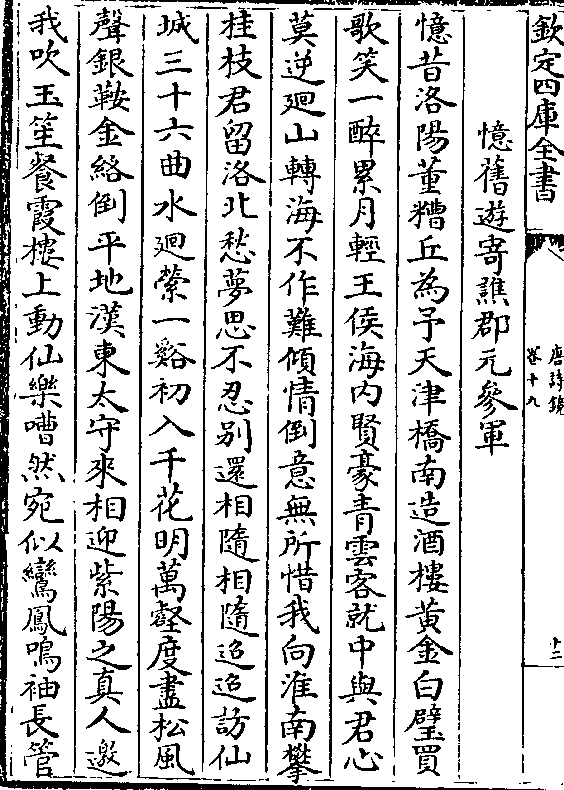 欽定四庫全書
唐詩鏡
卷十九
十二
憶舊遊寄譙郡元參軍
憶昔洛陽董糟丘為予天津橋南造酒樓黃金白璧買
歌笑一醉累月輕王侯海内賢豪青雲客就中與君心
莫逆廻山轉海不作難傾情倒意無所惜我向淮南攀
桂枝君留洛北愁夢思不忍别還相隨相隨迢迢訪仙
城三十六曲水廻縈一谿初入千花明萬壑度盡松風
聲銀鞍金絡倒平地漢東太守來相迎紫陽之真人邀
我吹玉笙餐霞樓上動仙樂嘈然宛似鸞鳳鳴袖長管